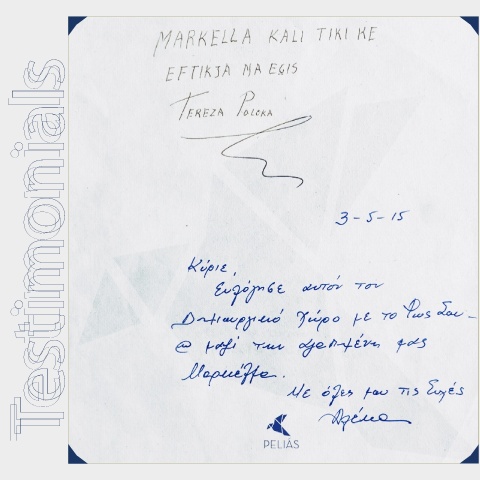 Testimonials
MARKELLA KALI TIKI KE
EFTIKJA NA EGIS
TEREZA POLCKA
3-5-15
Κύριε,
Ευλόγησε αυτόν τον
Δημιουργικό Χώρο με το Φως Σου -
@ μαζί την αγαπημένη μας
Μαρκέλλα.
Με όλες μου τις Ευχές
PELIÁS